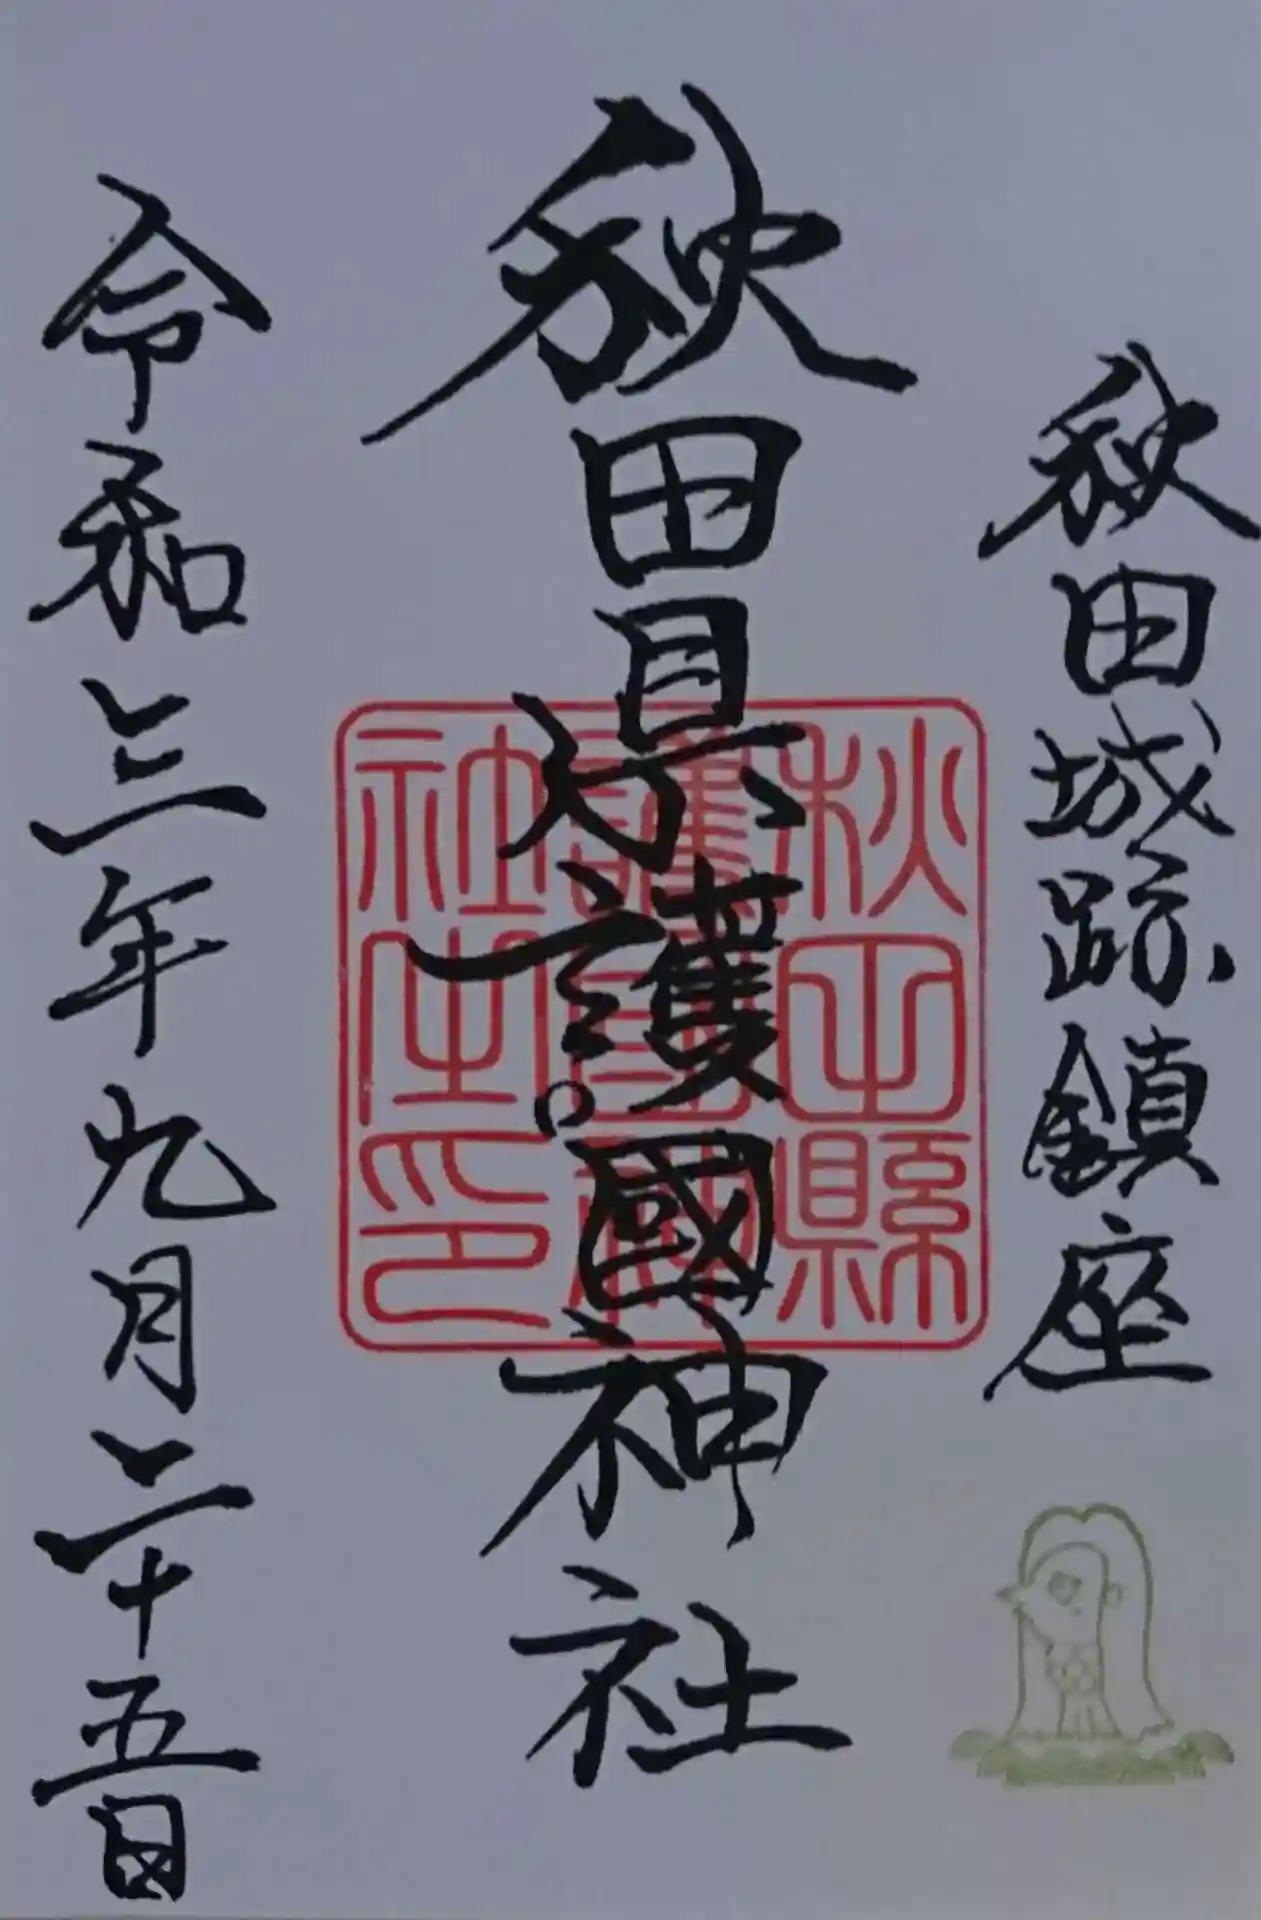 秋田城跡鎮座
秋田県護國神社
秋田縣
護國神
社之印
令和三年九月二十五日